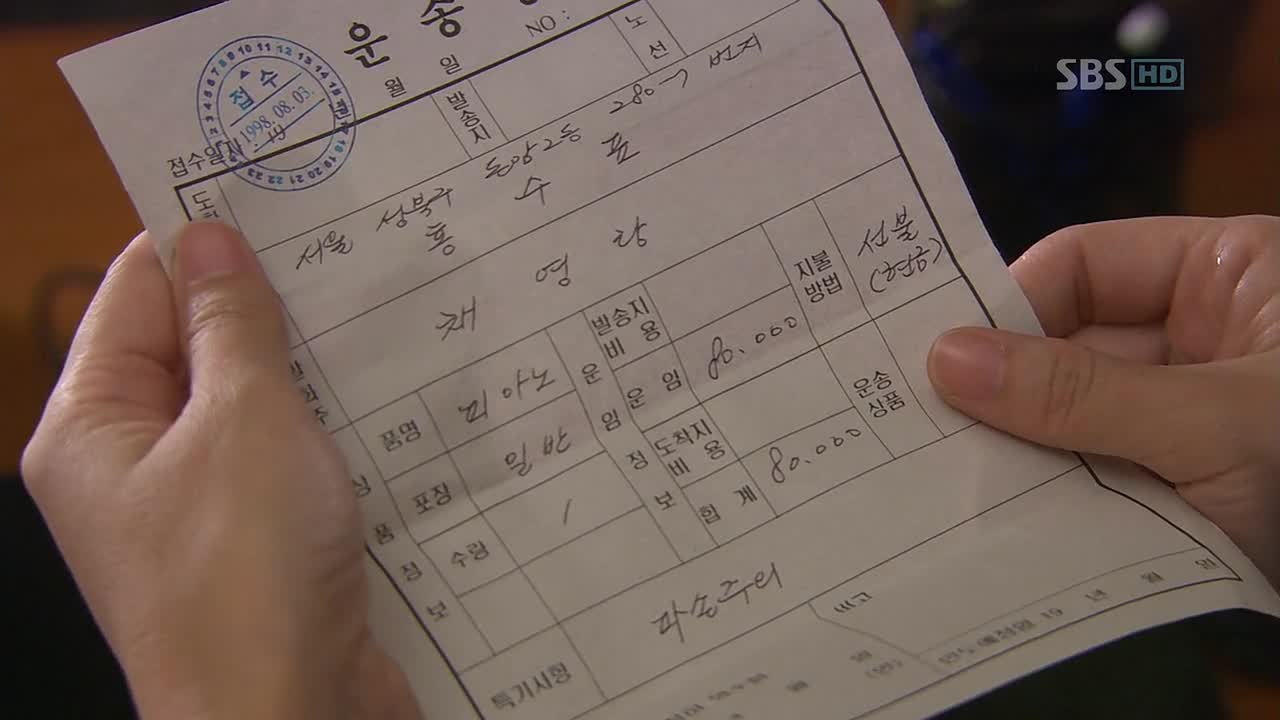 운 송
NO :
노 선
SBS HD
6 7 8 9 10 11 12 13 14 15
접수
1998. 08. 03.
접수일자 19
월 일
발송지
서울 성북구 동암2동 280-7 번지
홍 수 표
채 영 랑
품명 피아노
포장 일반
수량 1
상 품 정 보
운 임 정 보
발송지 비 용
운 임 80.000
도착지 비 용
합 계 80.000
지불 방법 선불 (현금)
운송 상품
특기사항 파손주의
비고
19 년 월 일